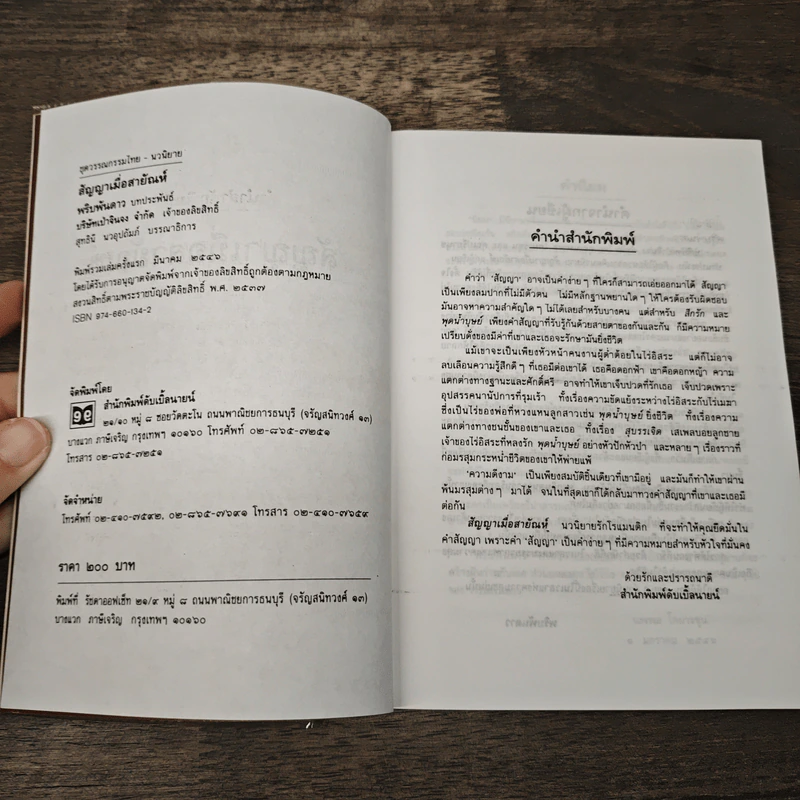 ชุดวรรณกรรมไทย - นวนิยาย
สัญญาเมื่อสายัณห์
พริบพันดาว บทประพันธ์
บริษัทเป่าจินจง จำกัด เจ้าของลิขสิทธิ์
สุทธินี นวอุปถัมภ์ บรรณาธิการ
พิมพ์รวมเล่มครั้งแรก มีนาคม ๒๕๔๖
โดยได้รับการอนุญาตจัดพิมพ์จากเจ้าของลิขสิทธิ์ถูกต้องตามกฎหมาย
สงวนสิทธิ์ตามพระราชบัญญัติลิขสิทธิ์ พ.ศ. ๒๕๓๗
ISBN 974-660-134-2
จัดพิมพ์โดย
สำนักพิมพ์ดับเบิ้ลนายน์
๒๑/๑๐ หมู่ ๘ ซอยวัดตะโน ถนนพาณิชยการธนบุรี (จรัญสนิทวงศ์ ๑๓)
บางแวก ภาษีเจริญ กรุงเทพฯ ๑๐๑๖๐ โทรศัพท์ ๐๒-๘๖๕-๗๒๕๑
โทรสาร ๐๒-๘๖๕-๗๒๕๑
จัดจำหน่าย
โทรศัพท์ ๐๒-๔๑๐-๗๕๙๒, ๐๒-๘๖๕-๗๖๙๑ โทรสาร ๐๒-๔๑๐-๗๖๕๙
ราคา ๒๐๐ บาท
พิมพ์ที่ รัชดาออฟเซ็ท ๒๑/๙ หมู่ ๘ ถนนพาณิชยการธนบุรี (จรัญสนิทวงศ์ ๑๓)
บางแวก ภาษีเจริญ กรุงเทพฯ ๑๐๑๖๐
คำนำสำนักพิมพ์
คำว่า 'สัญญา' อาจเป็นคำง่าย ๆ ที่ใครก็สามารถเอ่ยออกมาได้ สัญญา
เป็นเพียงลมปากที่ไม่มีตัวตน ไม่มีหลักฐานพยานใด ๆ ให้ใครต้องรับผิดชอบ
มันอาจหาความสำคัญใด ๆ ไม่ได้เลยสำหรับบางคน แต่สำหรับ สีกรัก และ
พุดน้ำบุษย์ เพียงคำสัญญาที่รับรู้กันด้วยสายตาของกันและกัน ก็มีความหมาย
เปรียบดั่งของมีค่าที่เขาและเธอจะรักษามันยิ่งชีวิต
แม้เขาจะเป็นเพียงหัวหน้าคนงานผู้ต่ำต้อยในไร่อิสระ แต่ก็ไม่อาจ
ลบเลือนความรู้สึกดี ๆ ที่เธอมีต่อเขาได้ เธอคือดอกฟ้า เขาคือดอกหญ้า ความ
แตกต่างทางฐานะและศักดิ์ศรี อาจทำให้เขาเจ็บปวดที่รักเธอ เจ็บปวดเพราะ
อุปสรรคนานัปการที่รุมเร้า ทั้งเรื่องความขัดแย้งระหว่างไร่อิสระกับไร่เมฆา
ซึ่งเป็นไร่ของพ่อที่หวงแหนลูกสาวเช่น พุดน้ำบุษย์ ยิ่งชีวิต ทั้งเรื่องความ
แตกต่างทางชนชั้นของเขาและเธอ ทั้งเรื่อง สุบรรเจิด เสเพลบอยลูกชาย
เจ้าของไร่อิสระที่หลงรัก พุดน้ำบุษย์ อย่างหัวปักหัวปำ และหลาย ๆ เรื่องราวที่
ก่อมรสุมกระหน่ำชีวิตของเขาให้พ่ายแพ้
'ความดีงาม' เป็นเพียงสมบัติชิ้นเดียวที่เขามีอยู่ และมันก็ทำให้เขาผ่าน
พ้นมรสุมต่าง ๆ มาได้ จนในที่สุดเขาก็ได้กลับมาทวงคำสัญญาที่เขาและเธอมี
ต่อกัน
สัญญาเมื่อสายัณห์ นวนิยายรักโรแมนติก ที่จะทำให้คุณยึดมั่นใน
คำสัญญา เพราะคำ 'สัญญา' เป็นคำง่าย ๆ ที่มีความหมายสำหรับหัวใจที่มั่นคง
ด้วยรักและปรารถนาดี
สำนักพิมพ์ดับเบิ้ลนายน์